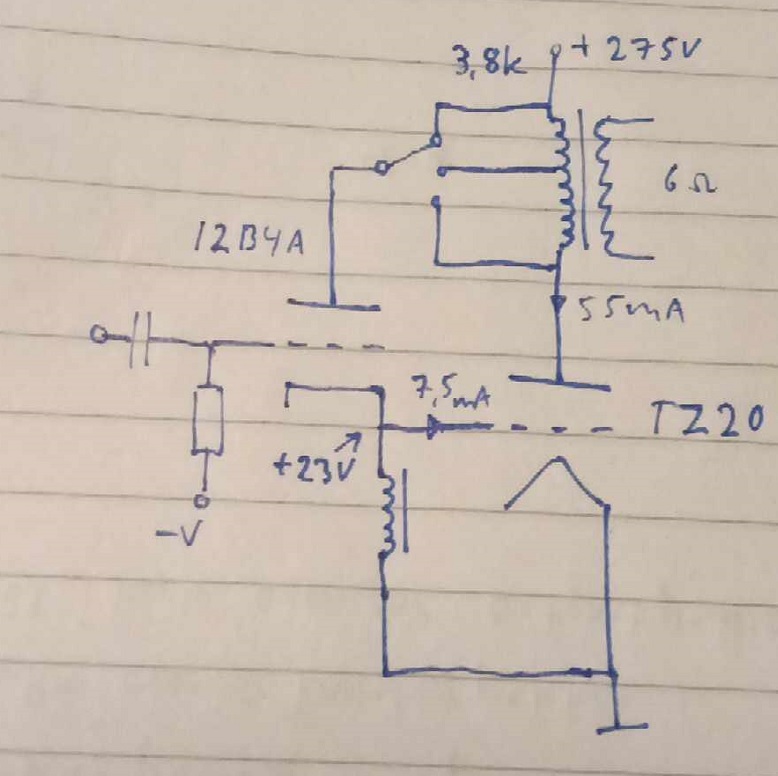 3,8k
+ 275V
6 Ω
12B4A
55mA
7,5mA
TZ20
+23V
-V